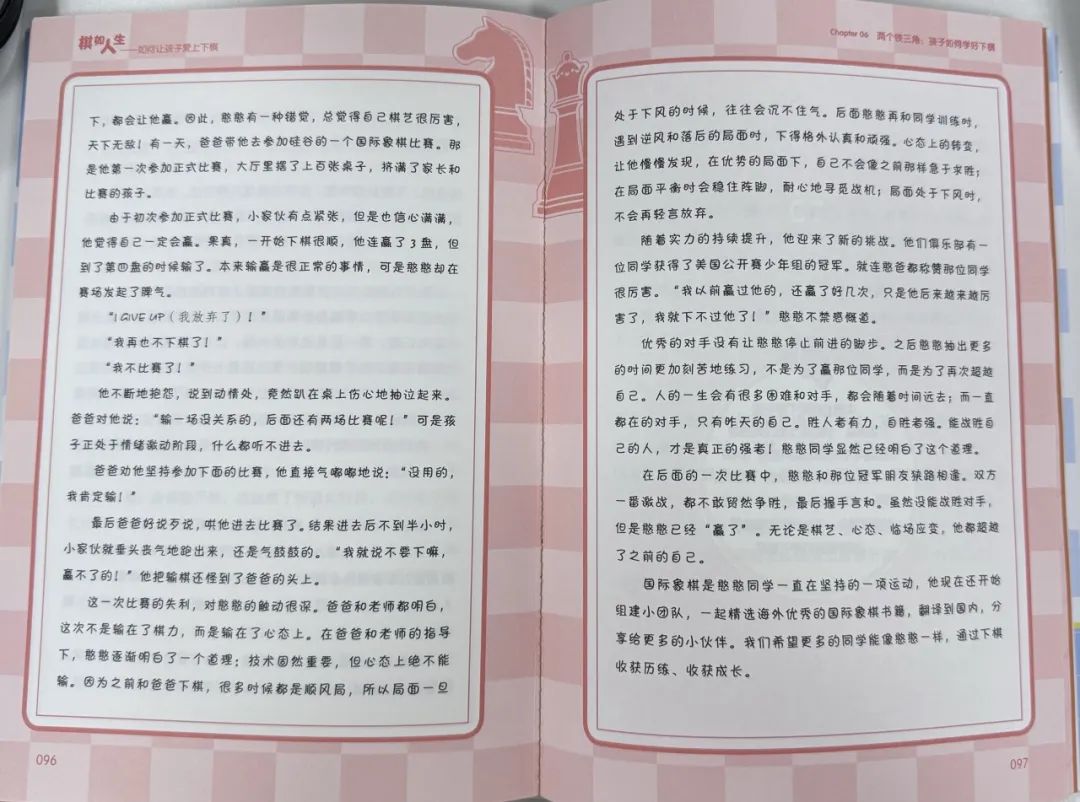 棋如人生——如何让孩子爱上下棋
下，都会让他赢。因此，憨憨有一种错觉，总觉得自己棋艺很厉害，
天下无敌！有一天，爸爸带他去参加硅谷的一个国际象棋比赛。那
是他第一次参加正式比赛，大厅里摆了上百张桌子，挤满了家长和
比赛的孩子。
由于初次参加正式比赛，小家伙有点紧张，但是也信心满满，
他觉得自己一定会赢。果真，一开始下棋很顺，他连赢了3盘，但
到了第四盘的时候输了。本来输赢是很正常的事情，可是憨憨却在
赛场发起了脾气。
“I GIVE UP（我放弃了）！”
“我再也不下棋了！”
“我不比赛了！”
他不断地抱怨，说到动情处，竟然趴在桌上伤心地抽泣起来。
爸爸对他说：“输一场没关系的，后面还有两场比赛呢！”可是孩
子正处于情绪激动阶段，什么都听不进去。
爸爸劝他坚持参加下面的比赛，他直接气嘟嘟地说：“没用的，
我肯定输！”
最后爸爸好说歹说，哄他进去比赛了。结果进去后不到半小时，
小家伙就垂头丧气地跑出来，还是气鼓鼓的。“我就说不要下嘛，
赢不了的！”他把输棋还怪到了爸爸的头上。
这一次比赛的失利，对憨憨的触动很深。爸爸和老师都明白，
这次不是输在了棋力，而是输在了心态上。在爸爸和老师的指导
下，憨憨逐渐明白了一个道理：技术固然重要，但心态上绝不能
输。因为之前和爸爸下棋，很多时候都是顺风局，所以局面一旦
096
Chapter 06 两个铁三角：孩子如何学好下棋
处于下风的时候，往往会沉不住气。后面憨憨再和同学训练时，
遇到逆风和落后的局面时，下得格外认真和顽强。心态上的转变，
让他慢慢发现，在优势的局面下，自己不会像之前那样急于求胜；
在局面平衡时会稳住阵脚，耐心地寻觅战机；局面处于下风时，
不会再轻言放弃。
随着实力的持续提升，他迎来了新的挑战。他们俱乐部有一
位同学获得了美国公开赛少年组的冠军。就连憨爸都称赞那位同学
很厉害。“我以前赢过他的，还赢了好几次，只是他后来越来越厉
害了，我就下不过他了！”憨憨不禁感慨道。
优秀的对手没有让憨憨停止前进的脚步。之后憨憨抽出更多
的时间更加刻苦地练习，不是为了赢那位同学，而是为了再次超越
自己。人的一生会有很多困难和对手，都会随着时间远去；而一直
都在的对手，只有昨天的自己。胜人者有力，自胜者强。能战胜自
己的人，才是真正的强者！憨憨同学显然已经明白了这个道理。
在后面的一次比赛中，憨憨和那位冠军朋友狭路相逢。双方
一番激战，都不敢贸然争胜，最后握手言和。虽然没能战胜对手，
但是憨憨已经“赢了”。无论是棋艺、心态、临场应变，他都超越
了之前的自己。
国际象棋是憨憨同学一直在坚持的一项运动，他现在还开始
组建小团队，一起精选海外优秀的国际象棋书籍，翻译到国内，分
享给更多的小伙伴。我们希望更多的同学能像憨憨一样，通过下棋
收获历练、收获成长。
097